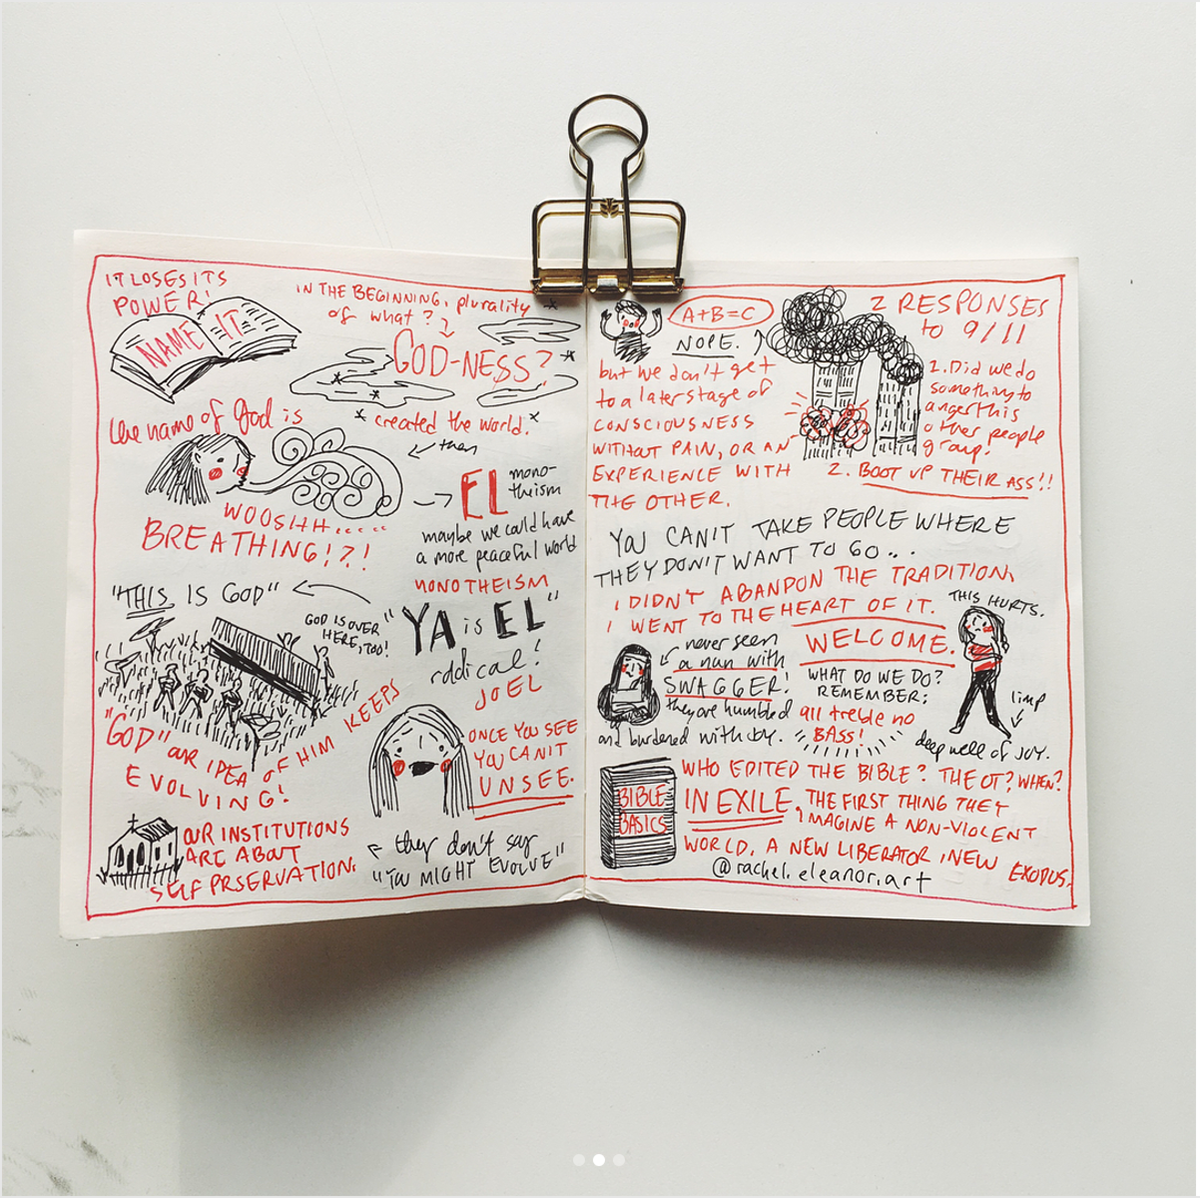 IT LOSES ITS
POWER!
NAME IT
IN THE BEGINNING, plurality
of what?
GOD-NESS?
* created the world. *
then
the name of God is
WOOSHH......
BREATHING!?!
EL
mono-
theism
maybe we could have
a more peaceful world
MONOTHEISM
"THIS IS GOD"
GOD IS OVER
HERE, TOO!
"YA is EL"
radical!
JOEL
"GOD" OUR IDEA OF HIM KEEPS
EVOLVING!
ONCE YOU SEE
YOU CAN'T
UNSEE.
OUR INSTITUTIONS
ARE ABOUT
SELF PRSERVATION.
they don't say
"YOU MIGHT EVOLVE"
A+B=C
NOPE.
but we don't get
to a later stage of
CONSCIOUSNESS
WITHOUT PAIN, OR AN
EXPERIENCE WITH
THE OTHER.
2 RESPONSES
to 9/11
1. Did we do
something to
anger this
other people
group?
2. BOOT UP THEIR ASS!!
YOU CAN'T TAKE PEOPLE WHERE
THEY DON'T WANT TO GO...
I DIDN'T ABANDON THE TRADITION,
I WENT TO THE HEART OF IT.
THIS HURTS.
never seen
a nun with
SWAGGER!
they are humbled
and burdered with joy.
WELCOME.
WHAT DO WE DO?
REMEMBER:
all treble no
BASS!
limp
deep well of JOY.
BIBLE
BASICS
WHO EDITED THE BIBLE? THE OT? WHEN?
IN EXILE, THE FIRST THING THEY
IMAGINE A NON-VIOLENT
WORLD, A NEW LIBERATOR, NEW EXODUS.
@rachel.eleanor.art